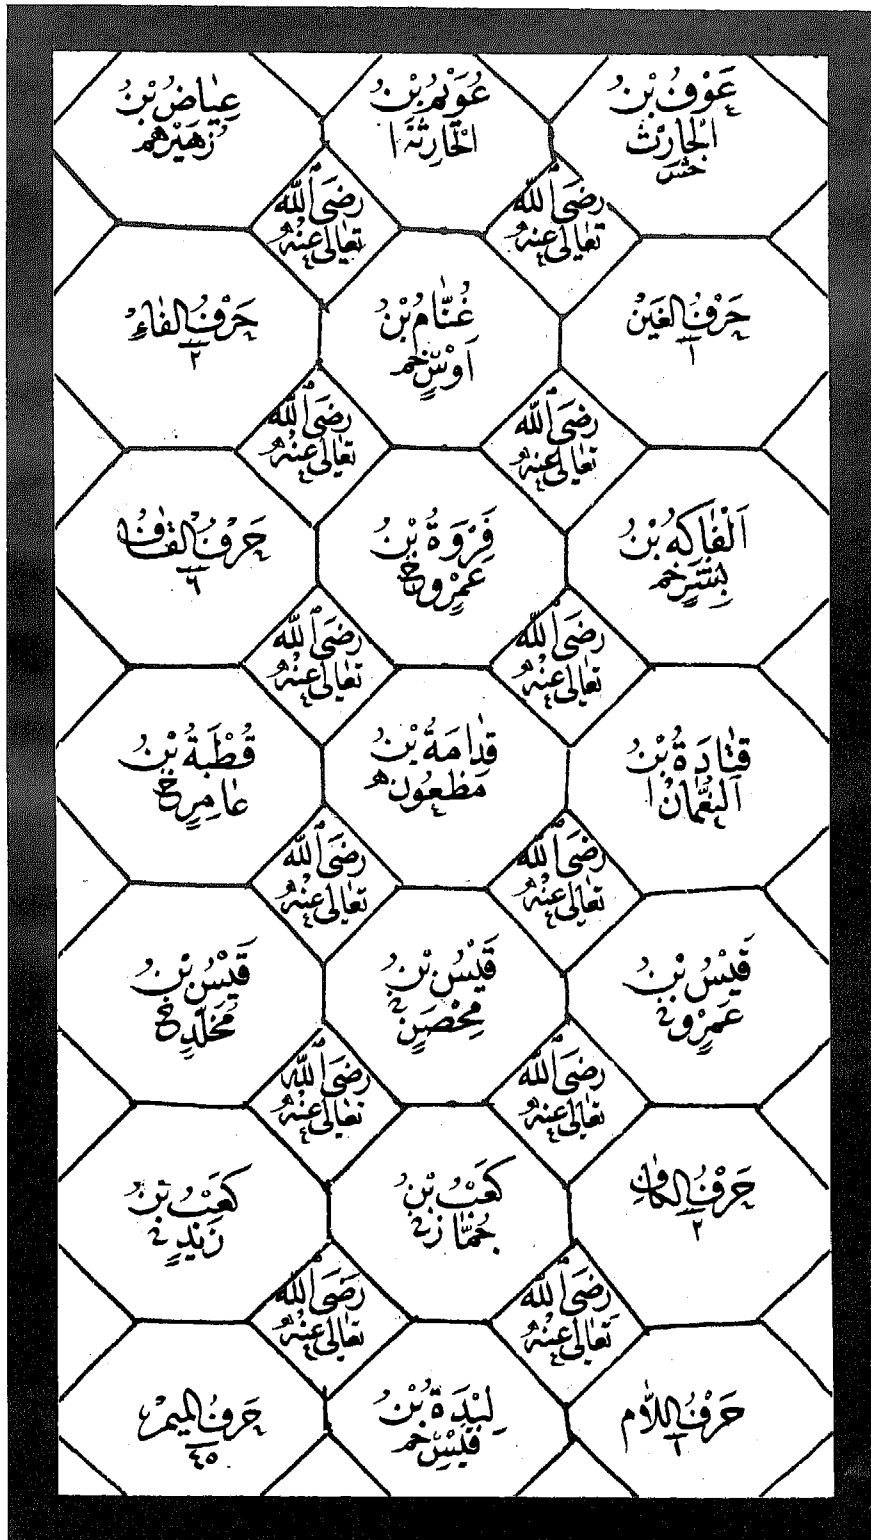 عَوْفُ بْنُ
الْحَارِثْ
عُوَيْمُ بْنُ
الْحَارِثَةَ ا
عِيَاضُ بْنُ
زُهَيْرٍ
رَضِيَ اللّٰهُ
تَعَالٰى عَنْهُ
رَضِيَ اللّٰهُ
تَعَالٰى عَنْهُ
حَرْفُ الْغَيْنْ
١
غُنَّامُ بْنُ
اَوْسٍ
حَرْفُ الْفَاءِ
٢
رَضِيَ اللّٰهُ
تَعَالٰى عَنْهُ
رَضِيَ اللّٰهُ
تَعَالٰى عَنْهُ
اَلْفَاكِهُ بْنُ
بِشْرٍ
فِرْوَةُ بْنُ
عَمْرٍو
حَرْفُ الْقَافْ
٦
رَضِيَ اللّٰهُ
تَعَالٰى عَنْهُ
رَضِيَ اللّٰهُ
تَعَالٰى عَنْهُ
قَتَادَةُ بْنُ
النُّعْمَانْ ا
قُدَامَةُ بْنُ
مَظْعُونْ
قُطْبَةُ بْنُ
عَامِرٍ
رَضِيَ اللّٰهُ
تَعَالٰى عَنْهُ
رَضِيَ اللّٰهُ
تَعَالٰى عَنْهُ
قَيْسُ بْنُ
عَمْرٍو
قَيْسُ بْنُ
مِحْصَنٍ
قَيْسُ بْنُ
مُخَلَّدٍ
رَضِيَ اللّٰهُ
تَعَالٰى عَنْهُ
رَضِيَ اللّٰهُ
تَعَالٰى عَنْهُ
حَرْفُ الْكَافْ
٢
كَعْبُ بْنُ
جُمَّازْ
كَعْبُ بْنُ
زَيْدٍ
رَضِيَ اللّٰهُ
تَعَالٰى عَنْهُ
رَضِيَ اللّٰهُ
تَعَالٰى عَنْهُ
حَرْفُ اللَّامْ
١
لِبْدَةُ بْنُ
قَيْسٍ
حَرْفُ الْمِيمْ
٤٥